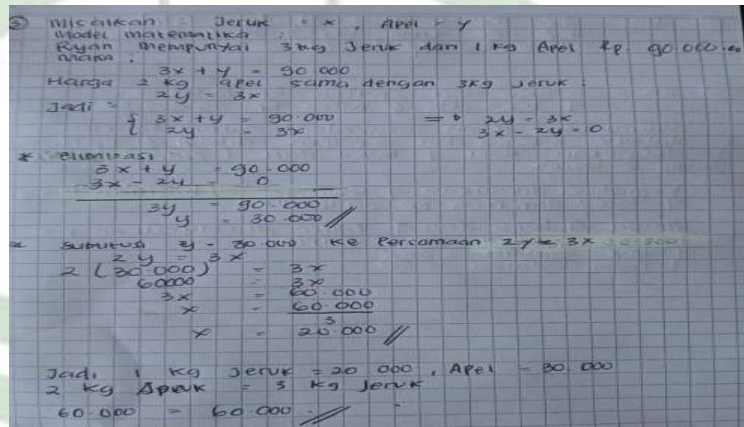 ③ misalkan : Jeruk = x , Apel = y
Model matematika :
Ryan mempunyai 3 kg Jeruk dan 1 kg Apel Rp. 90.000,00
maka :
3x + y = 90.000
Harga 2 kg apel sama dengan 3kg jeruk :
2y = 3x
Jadi =
{ 3x + y = 90.000 => 2y = 3x
{ 2y = 3x 3x - 2y = 0
* eliminasi
3x + y = 90.000
3x - 2y = 0 -
3y = 90.000
y = 30.000 //
* y = 30.000 ke Persamaan 2y = 3x
2y = 3x
2 (30.000) = 3x
60000 = 3x
3x = 60.000
x = 60.000
3
x = 20.000 //
Jadi 1 kg Jeruk = 20 000 , Apel = 30.000
2 kg = 3 kg Jeruk
60.000 = 60.000 //